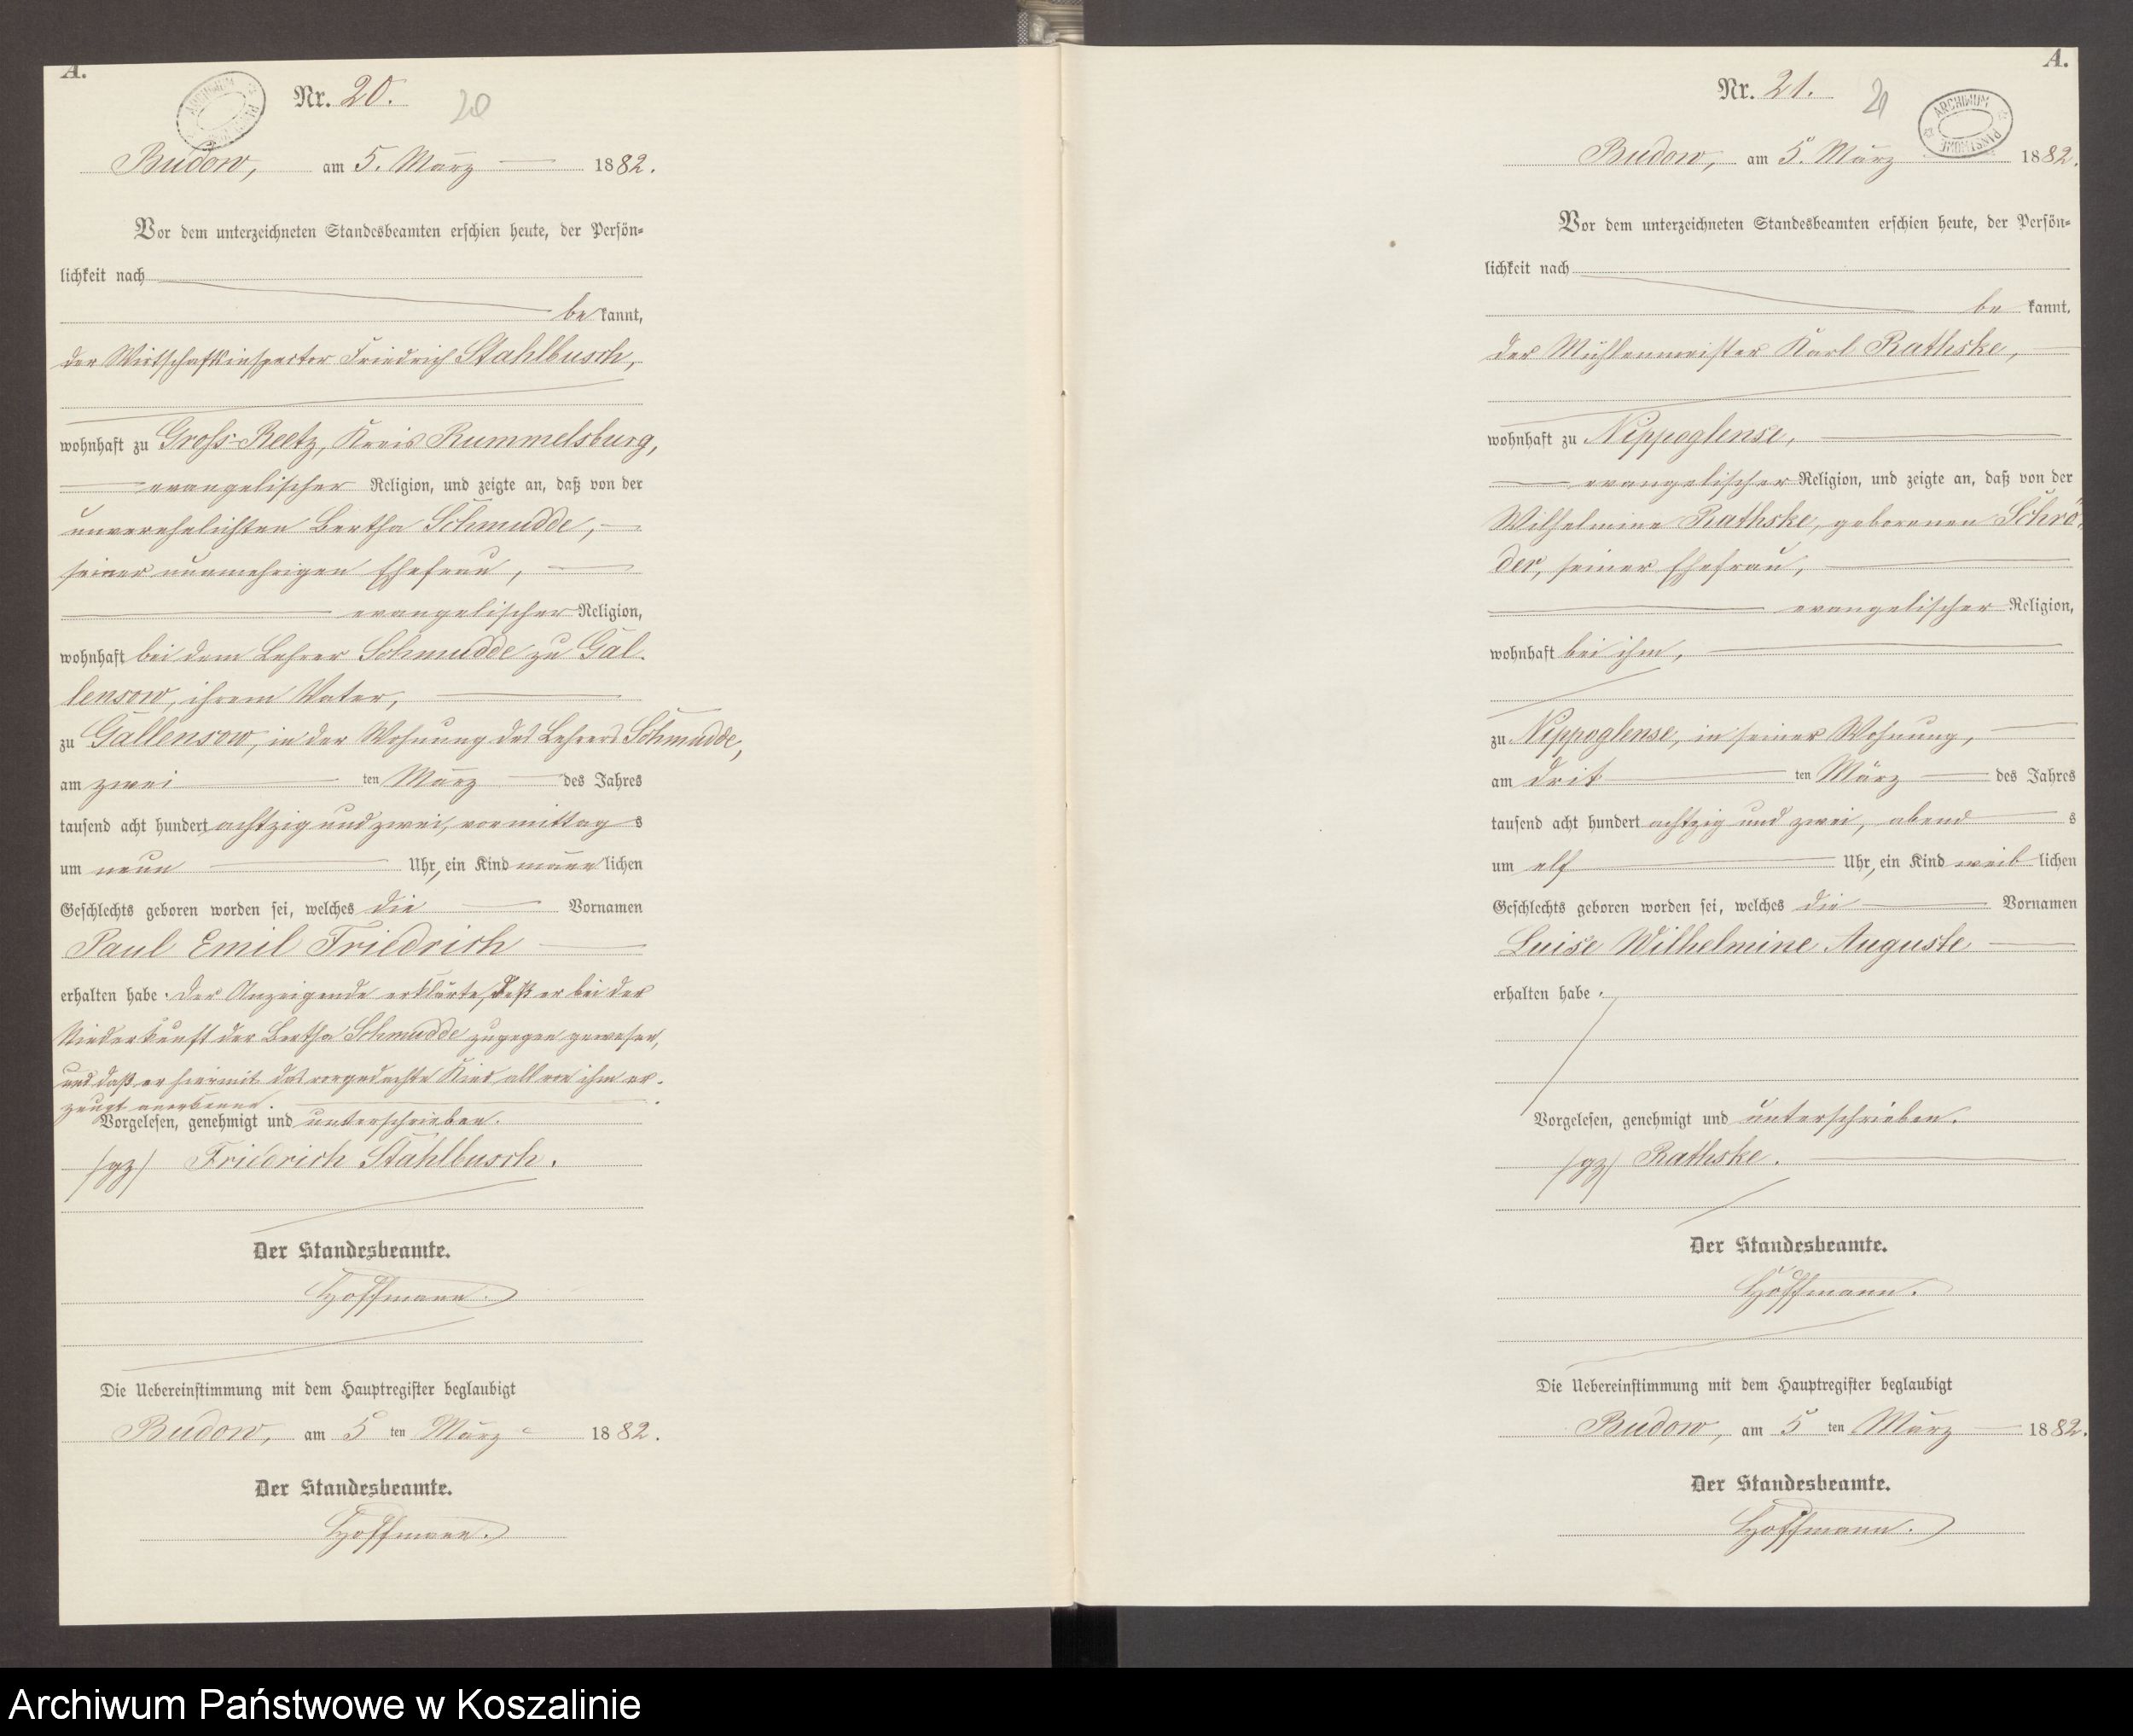 A.
Nr. 20.
20
ARCHIWUM
Budow, am 5. März 1882.
Vor dem unterzeichneten Standesbeamten erschien heute, der Persön=
lichkeit nach
be kannt,
der Wirtschaftsinspector Friedrich Stahlbusch,
wohnhaft zu Groß-Reetz, Kreis Rummelsburg,
evangelischer Religion, und zeigte an, daß von der
unverehelichten Bertha Schmudde,
seiner nunmehrigen Ehefrau,
evangelischer Religion,
wohnhaft bei dem Lehrer Schmudde zu Gal-
lensow, ihrem Vater,
zu Gallensow, in der Wohnung des Lehrers Schmudde,
am zwei ten März des Jahres
tausend acht hundert achtzig und zwei, vormittag s
um neun Uhr, ein Kind männ lichen
Geschlechts geboren worden sei, welches die Vornamen
Paul Emil Friedrich
erhalten habe. Der Anzeigende erklärte, daß er bei der
Niederkunft der Bertha Schmudde zugegen gewesen,
und daß er hiermit das vorgedachte Kind als von ihm er-
zeugt anerkenne.
Vorgelesen, genehmigt und unterschrieben.
(gz) Friederich Stahlbusch.
Der Standesbeamte.
Hoffmann.
Die Uebereinstimmung mit dem Hauptregister beglaubigt
Budow, am 5 ten März 1882.
Der Standesbeamte.
Hoffmann.
A.
Nr. 21.
21
ARCHIWUM PAŃSTWOWE
Budow, am 5. März 1882.
Vor dem unterzeichneten Standesbeamten erschien heute, der Persön=
lichkeit nach
be kannt,
der Mühlenmeister Karl Rathske,
wohnhaft zu Nippoglense,
evangelischer Religion, und zeigte an, daß von der
Wilhelmine Rathske, geborenen Schrö-
der, seiner Ehefrau,
evangelischer Religion,
wohnhaft bei ihm,
zu Nippoglense, in seiner Wohnung,
am drit ten März des Jahres
tausend acht hundert achtzig und zwei, abend s
um elf Uhr, ein Kind weib lichen
Geschlechts geboren worden sei, welches die Vornamen
Luise Wilhelmine Auguste
erhalten habe.
Vorgelesen, genehmigt und unterschrieben.
(gz) Rathske.
Der Standesbeamte.
Hoffmann.
Die Uebereinstimmung mit dem Hauptregister beglaubigt
Budow, am 5 ten März 1882.
Der Standesbeamte.
Hoffmann.
Archiwum Państwowe w Koszalinie